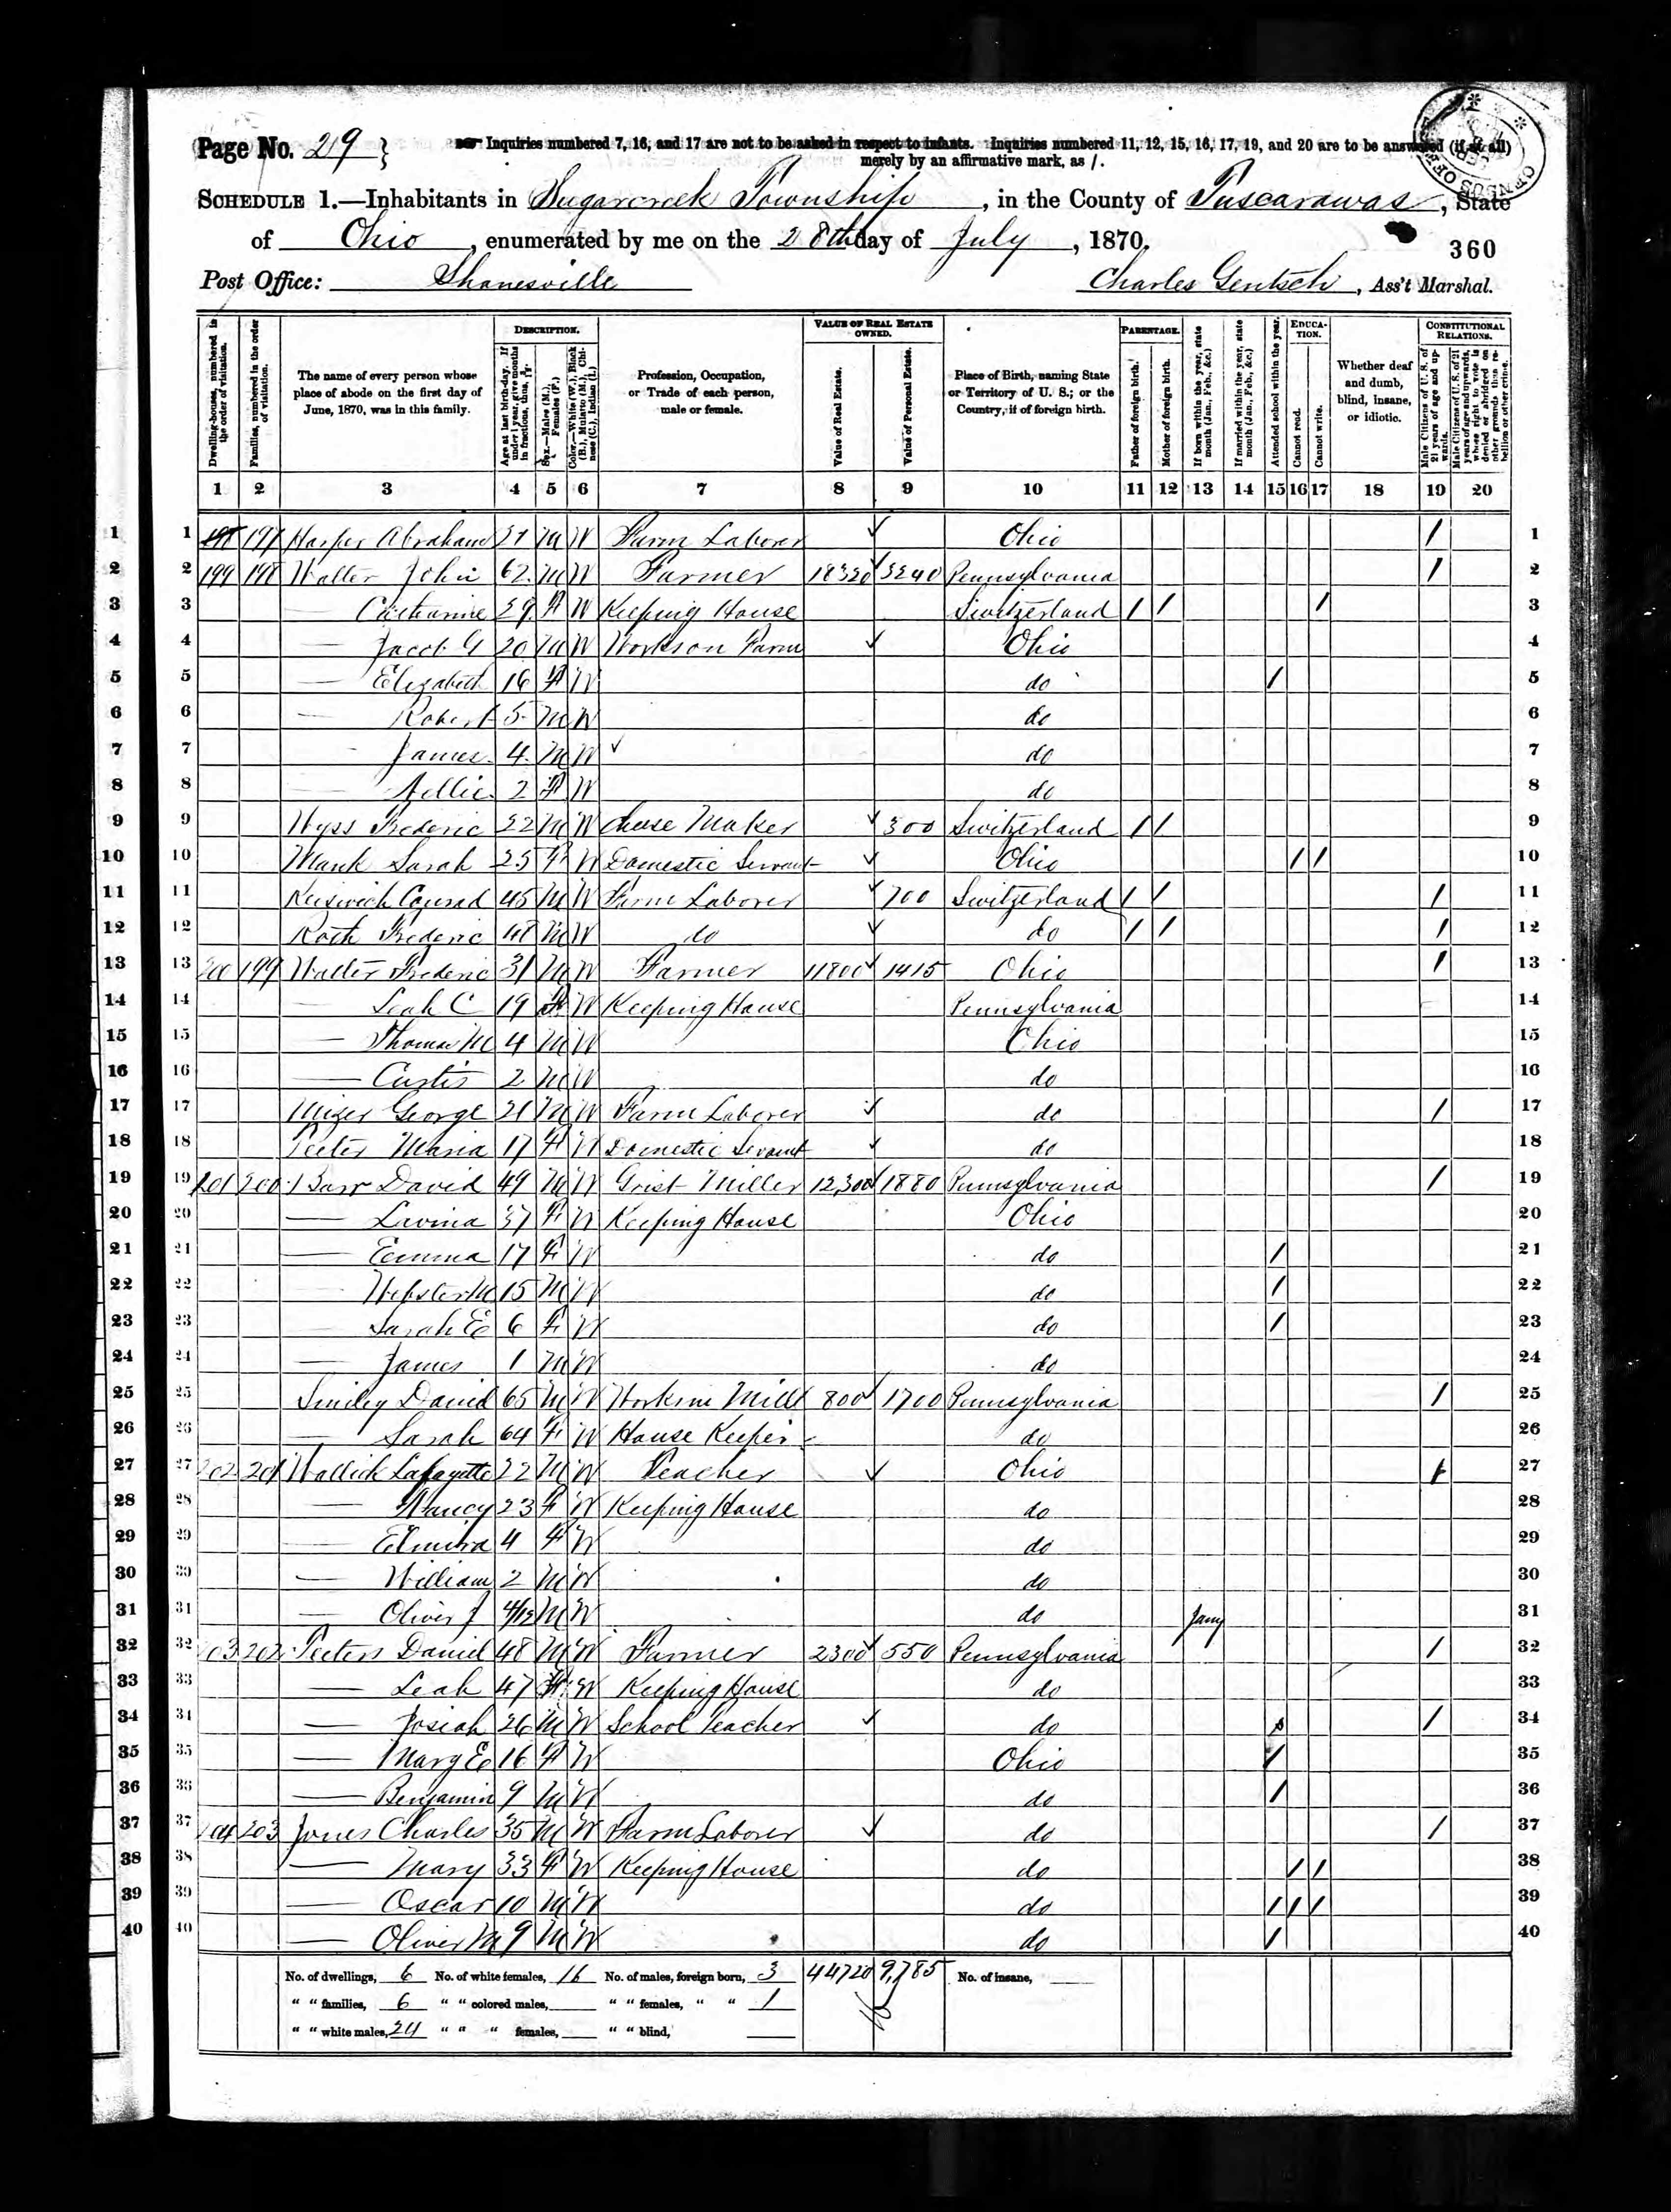 Page No. 29 } Inquiries numbered 7, 16, and 17 are not to be asked in respect to infants. Inquiries numbered 11, 12, 15, 16, 17, 19, and 20 are to be answered (if at all)
merely by an affirmative mark, as /.
CENSUS OFFICE
SCHEDULE 1.—Inhabitants in Sugarcreek Township, in the County of Tuscarawas, State
of Ohio, enumerated by me on the 28th day of July, 1870.
360
Post Office: Shanesville Charles Gentsch, Ass't Marshal.
Dwelling-houses, numbered in the order of visitation.
Families, numbered in the order of visitation.
The name of every person whose place of abode on the first day of June, 1870, was in this family.
DESCRIPTION.
Age at last birth-day. If under 1 year, give months in fractions, thus, 3/12.
Sex.—Males (M.), Females (F.)
Color.—White (W.), Black (B.), Mulatto (M.), Chinese (C.), Indian (I.)
Profession, Occupation, or Trade of each person, male or female.
VALUE OF REAL ESTATE OWNED.
Value of Real Estate.
Value of Personal Estate.
Place of Birth, naming State or Territory of U. S.; or the Country, if of foreign birth.
PARENTAGE.
Father of foreign birth.
Mother of foreign birth.
If born within the year, state month (Jan., Feb., &c.)
If married within the year, state month (Jan., Feb., &c.)
Attended school within the year.
EDUCATION.
Cannot read.
Cannot write.
Whether deaf and dumb, blind, insane, or idiotic.
CONSTITUTIONAL RELATIONS.
Male Citizens of U. S. of 21 years of age and upwards.
Male Citizens of U. S. of 21 years of age and upwards, whose right to vote is denied or abridged on other grounds than rebellion or other crime.
1 2 3 4 5 6 7 8 9 10 11 12 13 14 15 16 17 18 19 20
1 1 197 Harper Abraham M W Farm Laborer Ohio / 1
2 2 199 198 Walter John 62 M W Farmer 18320 3240 Pennsylvania / 2
3 3 — Catharine F W Keeping House Switzerland / / / 3
4 4 — Jacob G 20 M W Works on Farm Ohio 4
5 5 — Elizabeth 16 F W do / 5
6 6 — Robert 5 M W do 6
7 7 — James 4 M W do 7
8 8 — Nellie 2 F W do 8
9 9 Wyss Frederic M W Cheese Maker 300 Switzerland / / 9
10 10 Mank Sarah 25 F W Domestic Servant Ohio / / 10
11 11 Conrad 45 M W Farm Laborer 700 Switzerland / / / 11
12 12 Roth Frederic 48 M W do do / / / 12
13 13 200 199 Walter Frederic 31 M W Farmer 11800 1415 Ohio / 13
14 14 — Leah C 19 F W Keeping House Pennsylvania 14
15 15 — Thomas M 4 M W Ohio 15
16 16 — Curtis 2 M W do 16
17 17 Mizer George 21 M W Farm Laborer do / 17
18 18 Peeter Maria 17 F W Domestic Servant do 18
19 19 201 200 Barr David 49 M W Grist Miller 12,300 1880 Pennsylvania / 19
20 20 — Lavina 37 F W Keeping House Ohio 20
21 21 — Emma 17 F W do / 21
22 22 — Webster M 15 M W do / 22
23 23 — Sarah E 6 F W do / 23
24 24 — James 1 M W do 24
25 25 Smiley David 65 M W Works in Mill 800 1700 Pennsylvania / 25
26 26 — Sarah 64 F W House Keeper do 26
27 27 202 201 Wallick Lafayette 22 M W Teacher Ohio / 27
28 28 — Nancy 23 F W Keeping House do 28
29 29 — Elmira 4 F W do 29
30 30 — William 2 M W do 30
31 31 — Oliver J 4/12 M W do Jany 31
32 32 203 202 Peeters Daniel 48 M W Farmer 2300 550 Pennsylvania / 32
33 33 — Leah 47 F W Keeping House do 33
34 34 — Josiah 26 M W School Teacher do / / 34
35 35 — Mary E 16 F W Ohio / 35
36 36 — Benjamin 9 M W do / 36
37 37 204 203 Jones Charles 35 M W Farm Laborer do / 37
38 38 — Mary 33 F W Keeping House do / / 38
39 39 — Oscar 10 M W do / / / 39
40 40 — Oliver M 9 M W do / 40
No. of dwellings, 6 No. of white females, 16 No. of males, foreign born, 3 44720 9,785 No. of insane,
" " families, 6 " " colored males, " " females, " " 1
" " white males, 24 " " " females, " " blind,